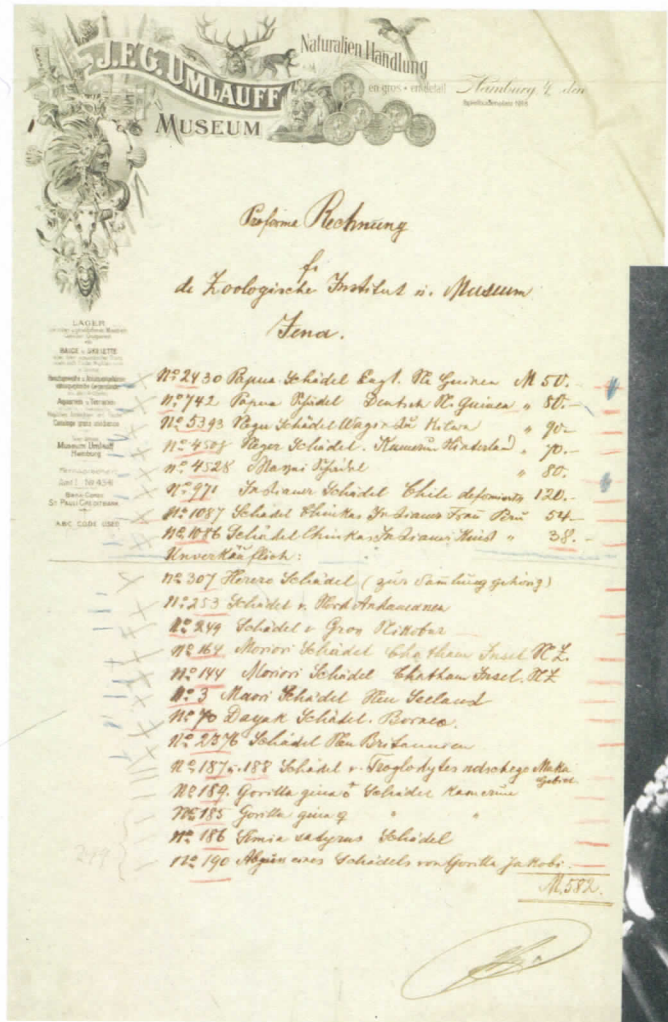 Naturalien Handlung
J.F.G. UMLAUFF
en gros • en detail
MUSEUM
Hamburg, den
Spielbudenplatz
Proforma Rechnung
f.
de Zoologische Institut u. Museum
Jena.
LAGER
Museum Umlauff
Hamburg
A.B.C. CODE USED
No 2430 Papua Schädel Engl. Ne Guinea M 50.-
No 742 Papua Schädel Deutsch N. Guinea " 80.-
No 5393 Neger Schädel Kilwa " 90-
No 4508 Neger Schädel. Kamerun Hinterland " 70.-
No 4528 Massai Schädel " 80.
No 971 Indianer Schädel Chile deformiert 120.-
No 1087 Schädel Chinkas Indianer Frau Peru 54-
No 1086 Schädel Chinkas Indianer Kind " 38.-
Unverkäuflich:
No 307 Herero Schädel (zur Samlung gehörig)
No 253 Schädel v. Nord Andamanen
No 249 Schädel v Gros Nikobar
No 164 Moriori Schädel Chatham Insel N.Z.
No 144 Moriori Schädel Chatham Insel. N.Z
No 3 Maori Schädel Neu Seeland
No 70 Dayak Schädel. Borneo.
No 2376 Schädel Neu Britannien
No 187 u. 188 Schädel v. Troglodytes
No 189. Gorilla gina ♂ Schädel Kamerun
No 185 Gorilla gina ♀ " "
No 186 Simia satyrus Schädel
No 190 Abguss eines Schädels von Gorilla Jakobi.
M. 582.